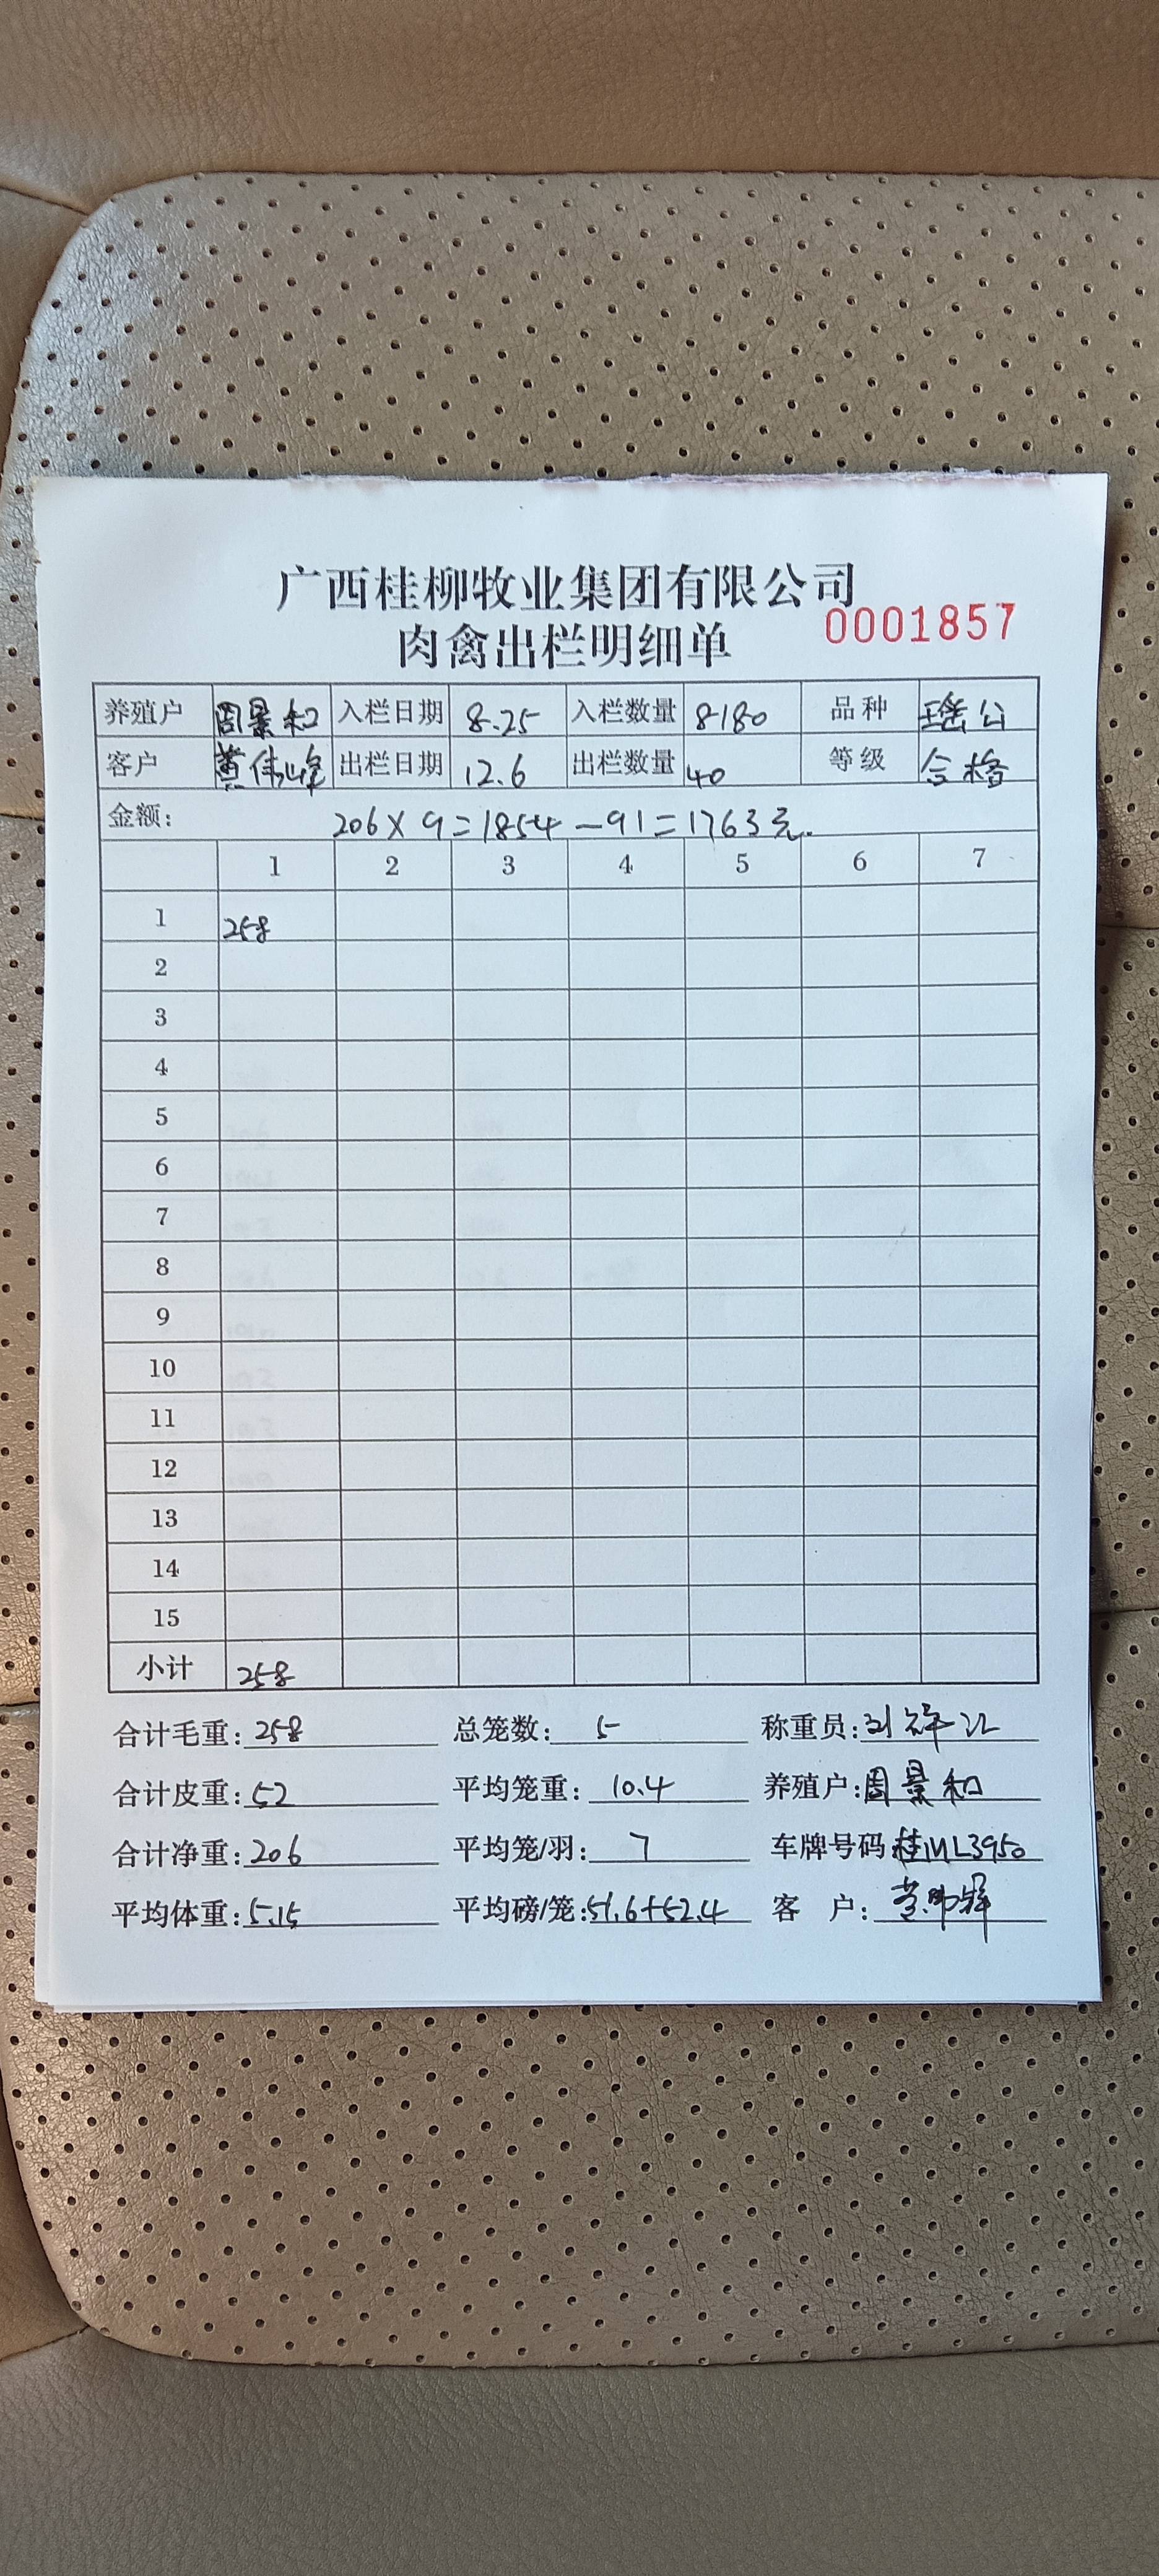 广西桂柳牧业集团有限公司
肉禽出栏明细单 0001857
养殖户 周景和 入栏日期 8.25 入栏数量 8180 品种 瑶公
客户 黄伟峰 出栏日期 12.6 出栏数量 40 等级 合格
金额: 206×9=1854-91=1763元.
1 2 3 4 5 6 7
1 258
2
3
4
5
6
7
8
9
10
11
12
13
14
15
小计 258
合计毛重: 258 总笼数: 5 称重员:
合计皮重: 52 平均笼重: 10.4 养殖户: 周景和
合计净重: 206 平均笼/羽: 7 车牌号码
平均体重: 5.15 平均磅/笼: 51.6+52.4 客 户: